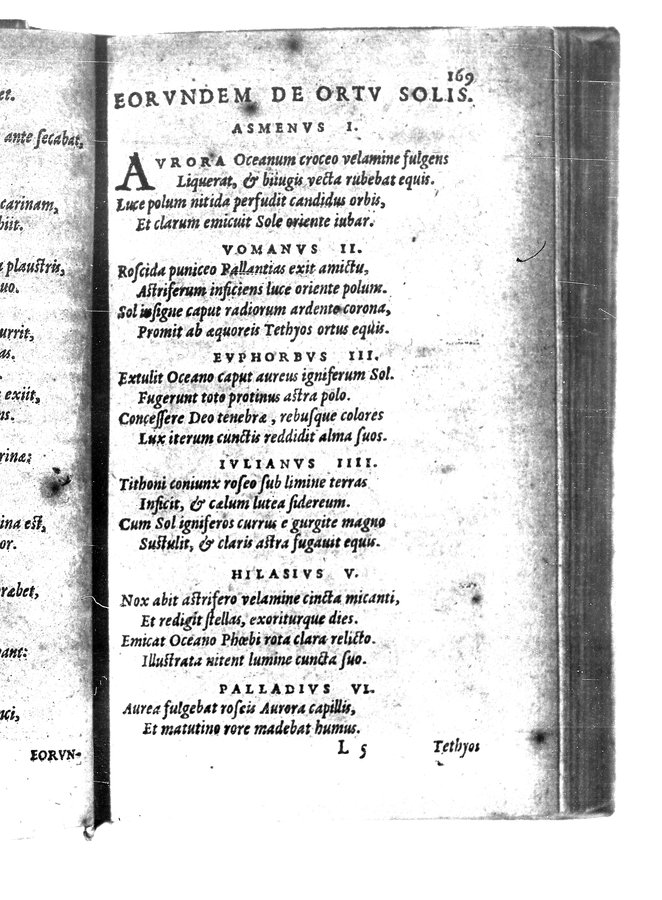 et.
ante ſecabat,
carinam,
biit.
plauſtris,
uo.
urrit,
as.
exiit,
us.
rinæ:
ina eſt,
or.
ræbet,
uant:
nci,
EORVN-
169
EORVNDEM DE ORTV SOLIS.
ASMENVS I.
AVRORA Oceanum croceo velamine fulgens
Liquerat, & biiugis vecta rubebat equis.
Luce polum nitida perfudit candidus orbis,
Et clarum emicuit Sole oriente iubar.
VOMANVS II.
Roſcida puniceo Pallantias exit amictu,
Aſtriferum inficiens luce oriente polum.
Sol inſigne caput radiorum ardente corona,
Promit ab æquoreis Tethyos ortus equis.
EVPHORBVS III.
Extulit Oceano caput aureus igniferum Sol.
Fugerunt toto protinus aſtra polo.
Conceſſere Deo tenebræ, rebuſque colores
Lux iterum cunctis reddidit alma ſuos.
IVLIANVS IIII.
Tithoni coniunx roſeo ſub limine terras
Inficit, & cælum lutea ſidereum.
Cum Sol igniferos currus e gurgite magno
Suſtulit, & claris aſtra fugauit equis.
HILASIVS V.
Nox abit aſtrifero velamine cincta micanti,
Et redigit ſtellas, exoriturque dies.
Emicat Oceano Phœbi rota clara relicto.
Illuſtrata nitent lumine cuncta ſuo.
PALLADIVS VI.
Aurea fulgebat roſcis Aurora capillis,
Et matutino rore madebat humus.
L 5 Tethyos